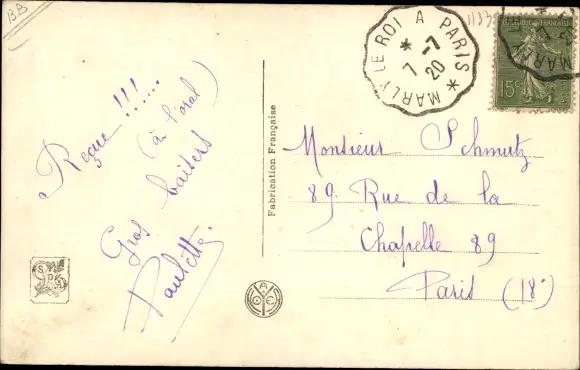 BB
Reçue !!!......
(à l'oral)
Gros baisers
Paulette
Fabrication Française
MARLY LE ROI A PARIS
* 7 -7 20 *
RÉPUBLIQUE FRANÇAISE
15c
Monsieur Schmutz
89. Rue de la
Chapelle 89
Paris (18e)